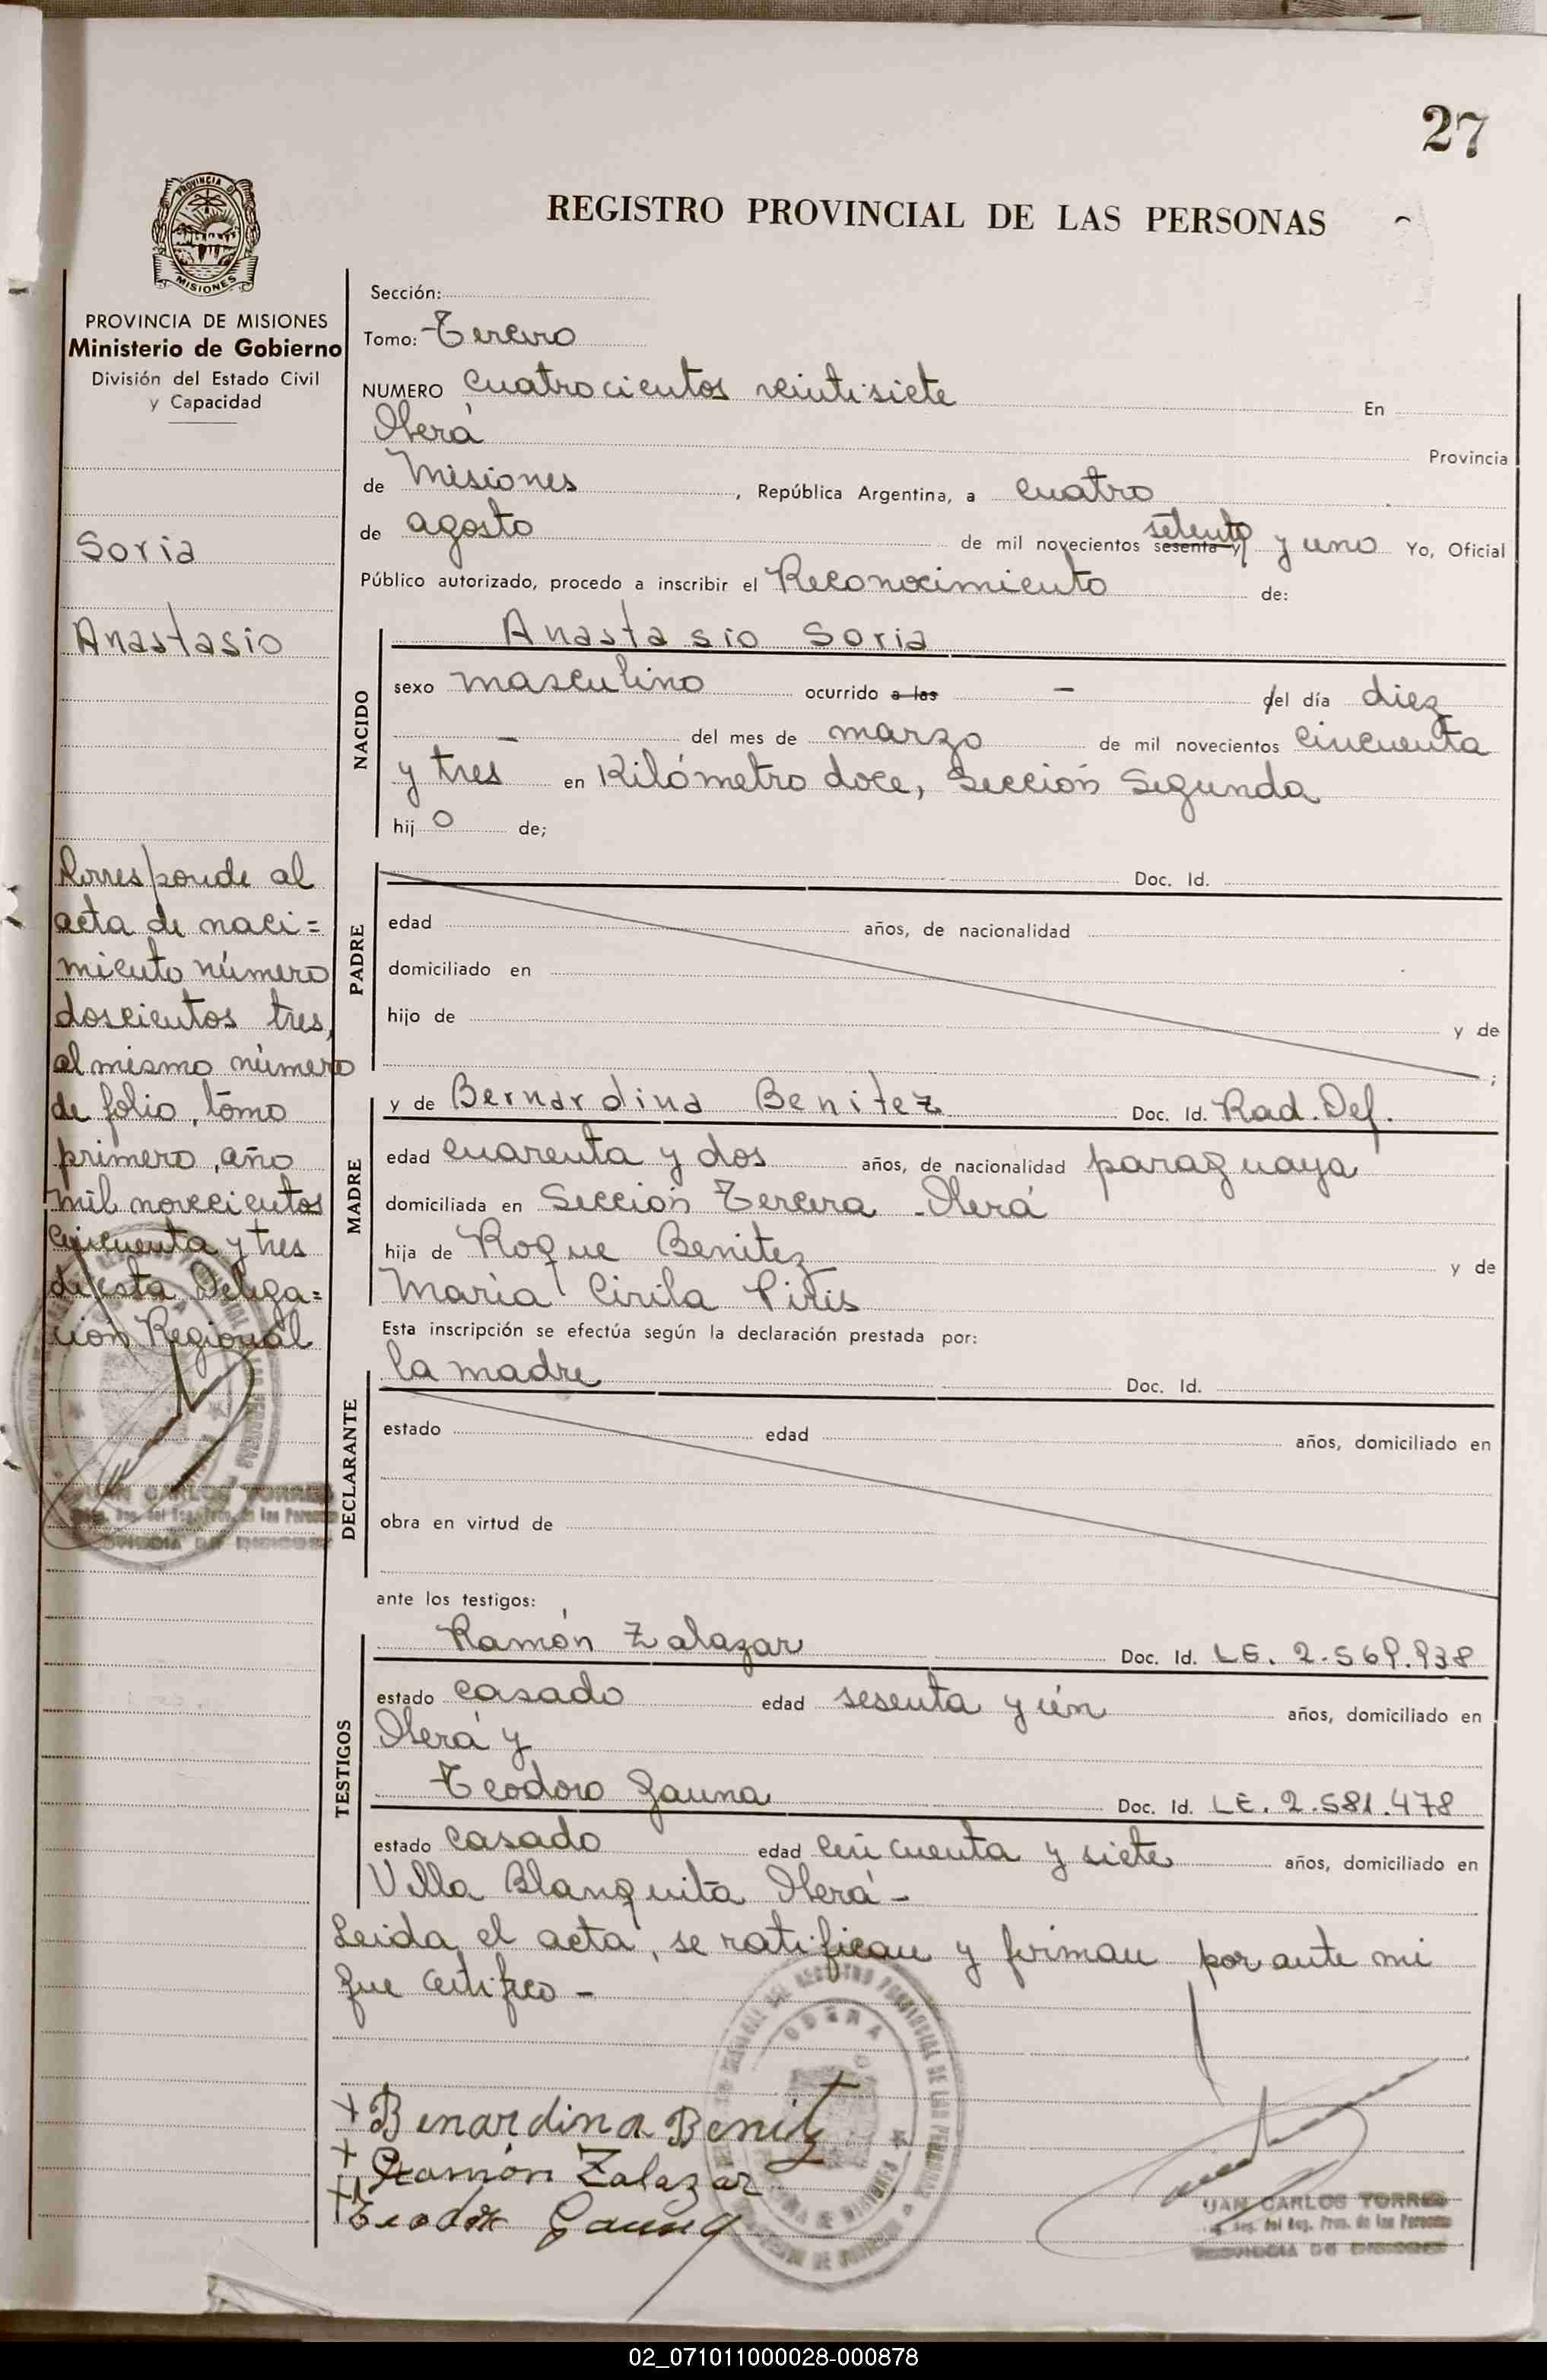 27
REGISTRO PROVINCIAL DE LAS PERSONAS
PROVINCIA DE
MISIONES
PROVINCIA DE MISIONES
Ministerio de Gobierno
División del Estado Civil
y Capacidad
Soria
Anastasio
Corresponde al
acta de naci=
miento número
doscientos tres,
al mismo número
de folio, tomo
primero, año
mil novecientos
cincuenta y tres
de esta Delega=
ción Regional
JUAN CARLOS TORRES
Sección:
Tomo: Tercero
NUMERO cuatrocientos veintisiete En
Oberá Provincia
de Misiones, República Argentina, a cuatro
de agosto de mil novecientos sesenta y setenta y uno Yo, Oficial
Público autorizado, procedo a inscribir el Reconocimiento de:
NACIDO
Anastasio Soria
sexo masculino ocurrido a las - del día diez
- del mes de marzo de mil novecientos cincuenta
y tres en Kilómetro doce, Sección Segunda
hij o de;
PADRE
Doc. Id.
edad años, de nacionalidad
domiciliado en
hijo de y de
;
MADRE
y de Bernardina Benitez Doc. Id. Rad. Def.
edad cuarenta y dos años, de nacionalidad paraguaya
domiciliada en Sección Tercera - Oberá
hija de Roque Benitez y de
María Cirila Piris
Esta inscripción se efectúa según la declaración prestada por:
DECLARANTE
la madre Doc. Id.
estado edad años, domiciliado en
obra en virtud de
ante los testigos:
TESTIGOS
Ramón Zalazar Doc. Id. LE. 2.569.938
estado casado edad sesenta y ún años, domiciliado en
Oberá y
Teodoro Gauna Doc. Id. LE. 2.581.478
estado casado edad cincuenta y siete años, domiciliado en
Villa Blanquita Oberá -
Leida el acta, se ratifican y firman por ante mi
que certifico -
OBERA
+ Benardina Benitz
+ Ramón Zalazar
+ Teodoro Gauna
JUAN CARLOS TORRES
02_071011000028-000878